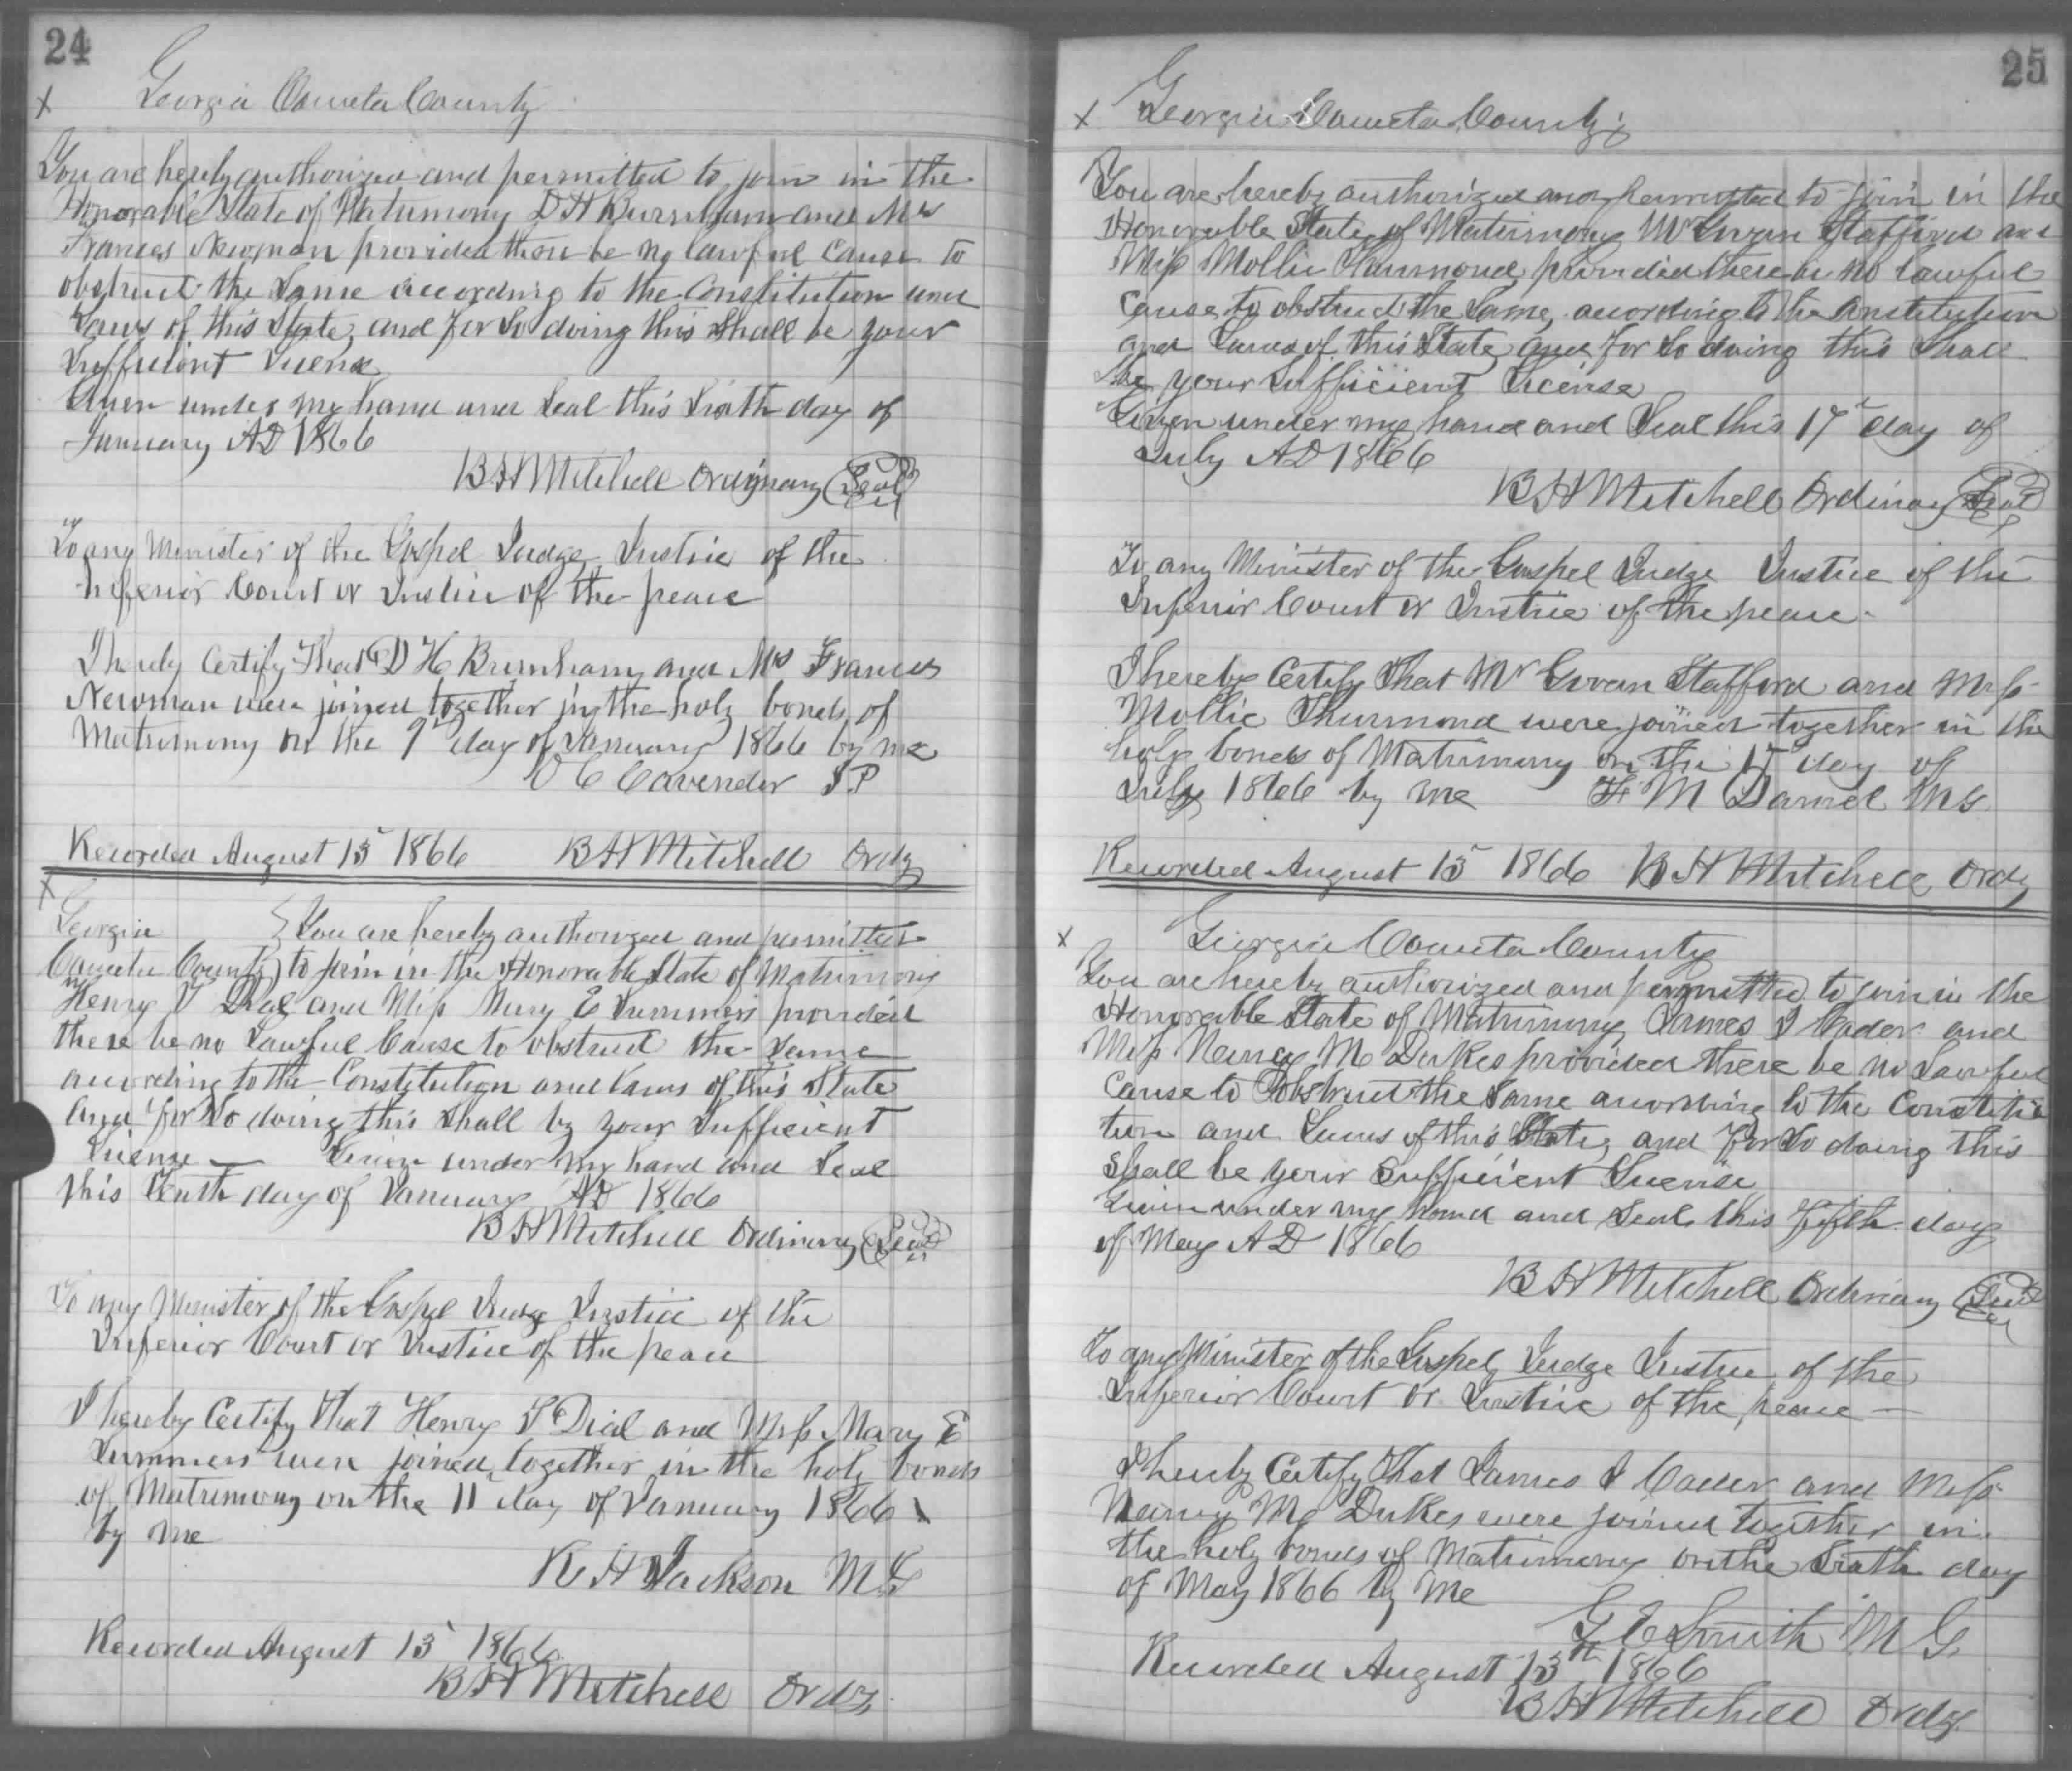 24
Georgia Coweta County
You are hereby authorized and permitted to join in the
Honorable State of Matrimony D H Burnham and Mrs
Frances Newman provided there be no lawful Cause to
obstruct the Same according to the Constitution and
Laws of this State, and for So doing this Shall be your
Sufficient License
Given under my hand and Seal this Sixth day of
January AD 1866
B H Mitchell Ordinary Seal
To any Minister of the Gospel Judge, Justice of the
Inferior Court or Justice of the peace
I hereby Certify That D H Burnham and Mrs Frances
Newman were joined together in the holy bonds of
Matrimony on the 9th day of January 1866 by me
C Cavender J.P
Recorded August 15 1866 B H Mitchell Ordy
Georgia } You are hereby authorized and permitted
Coweta County } to join in the Honorable State of Matrimony
Henry T Dial and Miss Mary E Summers provided
there be no Lawful Cause to obstruct the Same
according to the Constitution and Laws of this State
And for So doing this Shall by your Sufficient
License — Given under my hand and Seal
this Tenth day of January AD 1866
B H Mitchell Ordinary Seal
To any Minister of the Gospel Judge Justice of the
Inferior Court or Justice of the peace
I hereby Certify That Henry T Dial and Miss Mary E
Summers were joined together in the holy bonds
of Matrimony on the 11 day of January 1866
by me
R H Jackson M G
Recorded August 15 1866
B H Mitchell Ordy
25
Georgia Coweta County
You are hereby authorized and permitted to join in the
Honorable State of Matrimony Mr Govan Stafford and
Miss Mollie Thurmond, provided there be no lawful
Cause to obstruct the Same, according to the Constitution
and Laws of this State, and for So doing this Shall
be your Sufficient License
Given under my hand and Seal this 17 day of
July AD 1866
B H Mitchell Ordinary Seal
To any Minister of the Gospel Judge Justice of the
Inferior Court or Justice of the peace
I hereby Certify That Mr Govan Stafford and Miss
Mollie Thurmond were joined together in the
holy bonds of Matrimony on the 17 day of
July 1866 by me F M Daniel M G
Recorded August 15 1866 B H Mitchell Ordy
Georgia Coweta County
You are hereby authorized and permitted to join in the
Honorable State of Matrimony James J Cader and
Miss Nancy M Dukes provided there be no Lawful
Cause to Obstruct the Same according to the Constitu
tion and Laws of this State, and for So doing this
Shall be your Sufficient License
Given under my hand and Seal this fifth day
of May AD 1866
B H Mitchell Ordinary Seal
To any Minister of the Gospel, Judge Justice of the
Inferior Court or Justice of the peace —
I hereby Certify That James J Cader and Miss
Nancy M Dukes were joined together in
the holy bonds of Matrimony on the Sixth day
of May 1866 by me
G E Smith M G
Recorded August 15th 1866
B H Mitchell Ordy